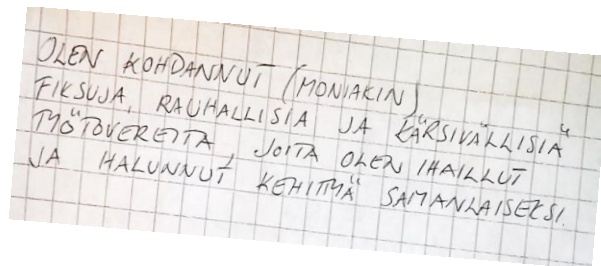 OLEN KOHDANNUT (MONIAKIN)
FIKSUJA, RAUHALLISIA JA KÄRSIVÄLLISIÄ
TYÖTOVEREITA, JOITA OLEN IHAILLUT
JA HALUNNUT KEHITTYÄ SAMANLAISEKSI.